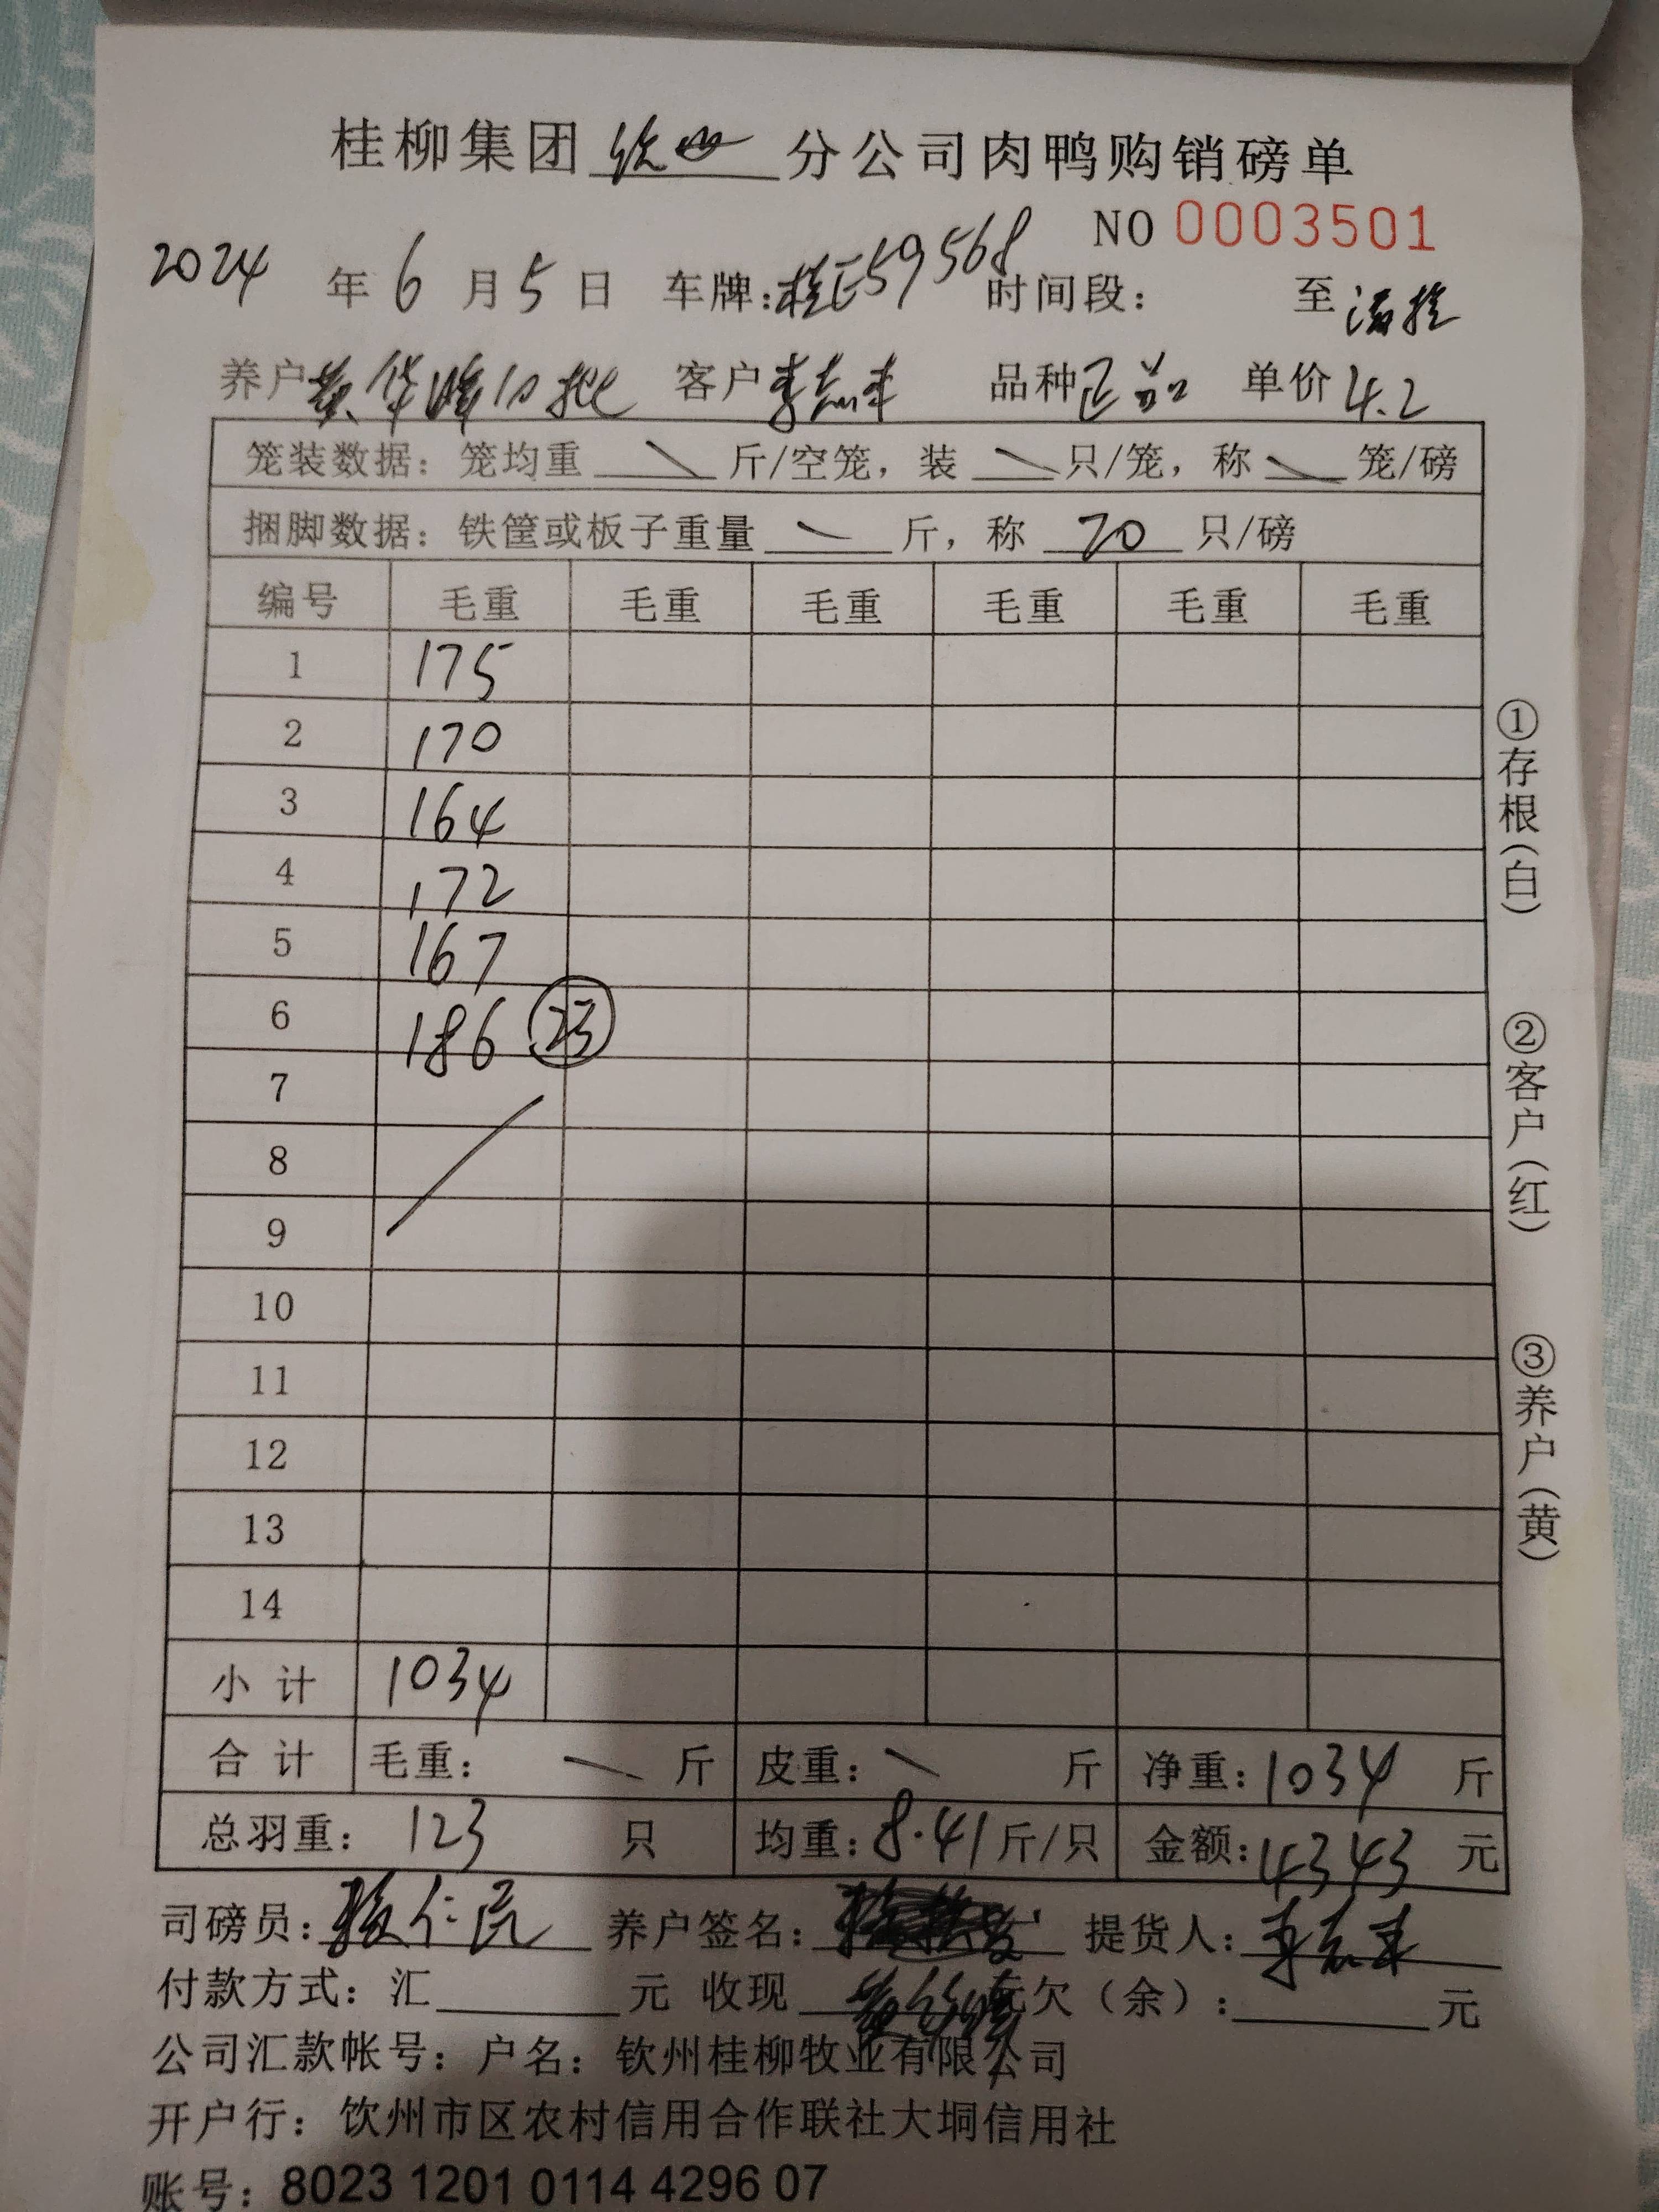 桂柳集团 钦州 分公司肉鸭购销磅单
NO 0003501
2024 年 6 月 5 日 车牌:桂E59568 时间段: 至
养户 黄华峰10批 客户 李志丰 品种 正品 单价 4.2
笼装数据: 笼均重 斤/空笼, 装 只/笼, 称 笼/磅
捆脚数据: 铁筐或板子重量 斤, 称 20 只/磅
编号 毛重 毛重 毛重 毛重 毛重 毛重
1 175
2 170
3 164
4 172
5 167
6 186 23
7
8
9
10
11
12
13
14
小计 1034
合计 毛重: 斤 皮重: 斤 净重: 1034 斤
总羽重: 123 只 均重: 8.41 斤/只 金额: 4343 元
司磅员: 仁 养户签名: 提货人: 李志丰
付款方式: 汇 元 收现 元 欠(余): 元
公司汇款帐号: 户名: 钦州桂柳牧业有限公司
开户行: 钦州市区农村信用合作联社大垌信用社
账号: 8023 1201 0114 4296 07
①存根(白)
②客户(红)
③养户(黄)